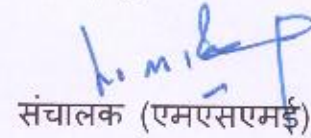 संचालक (एमएसएमई)